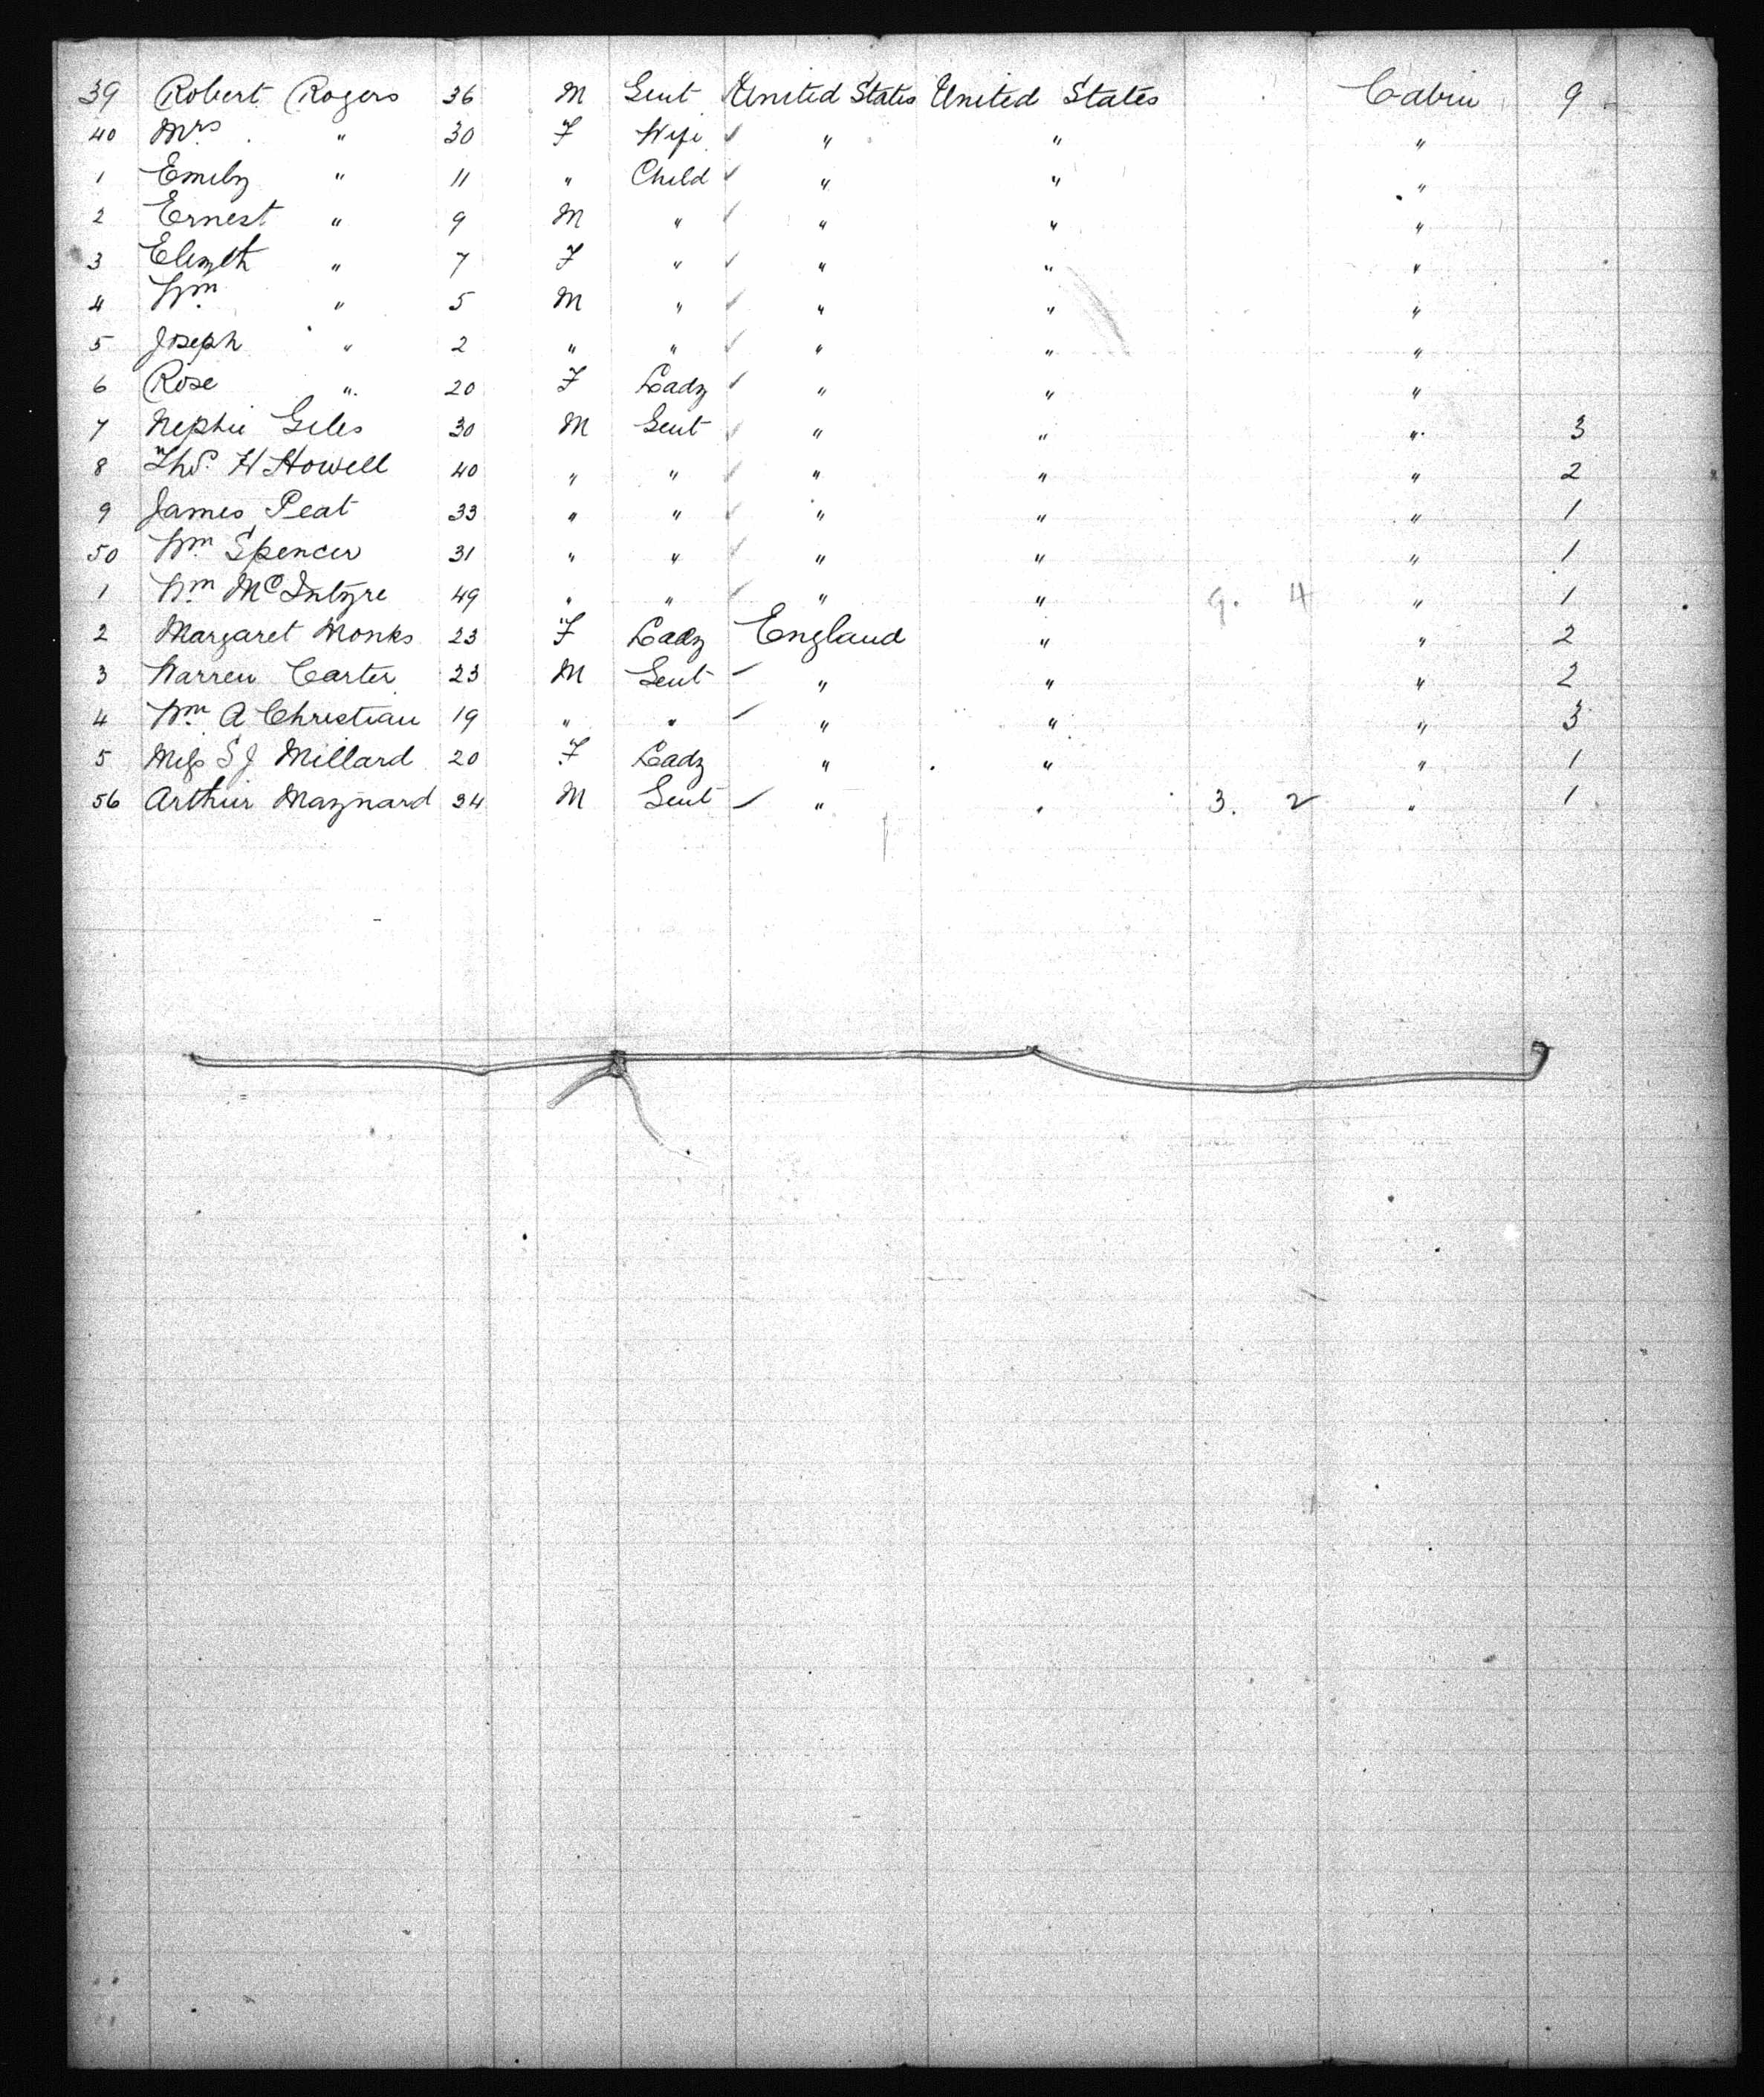 39 Robert Rogers 36 M Gent United States United States Cabin 9
40 Mrs " 30 F Wife " " "
1 Emily " 11 " Child " " "
2 Ernest " 9 M " " " "
3 Elizth " 7 F " " " "
4 Wm " 5 M " " " "
5 Joseph " 2 " " " " "
6 Rose " 20 F Lady " " "
7 Nephi Giles 30 M Gent " " " 3
8 Thos. H Howell 40 " " " " " 2
9 James Peat 33 " " " " " 1
50 Wm Spencer 31 " " " " " 1
1 Wm McIntyre 49 " " " " 9. 4 " 1
2 Margaret Monks 23 F Lady England " " 2
3 Warren Carter 23 M Gent " " " 2
4 Wm A Christian 19 " " " " " 3
5 Miss S J Millard 20 F Lady " " " 1
56 Arthur Maynard 34 M Gent " " 3. 2 " 1